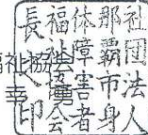 社団法人
那覇市身
体障害者
福祉協会
長 印
祉協
幸